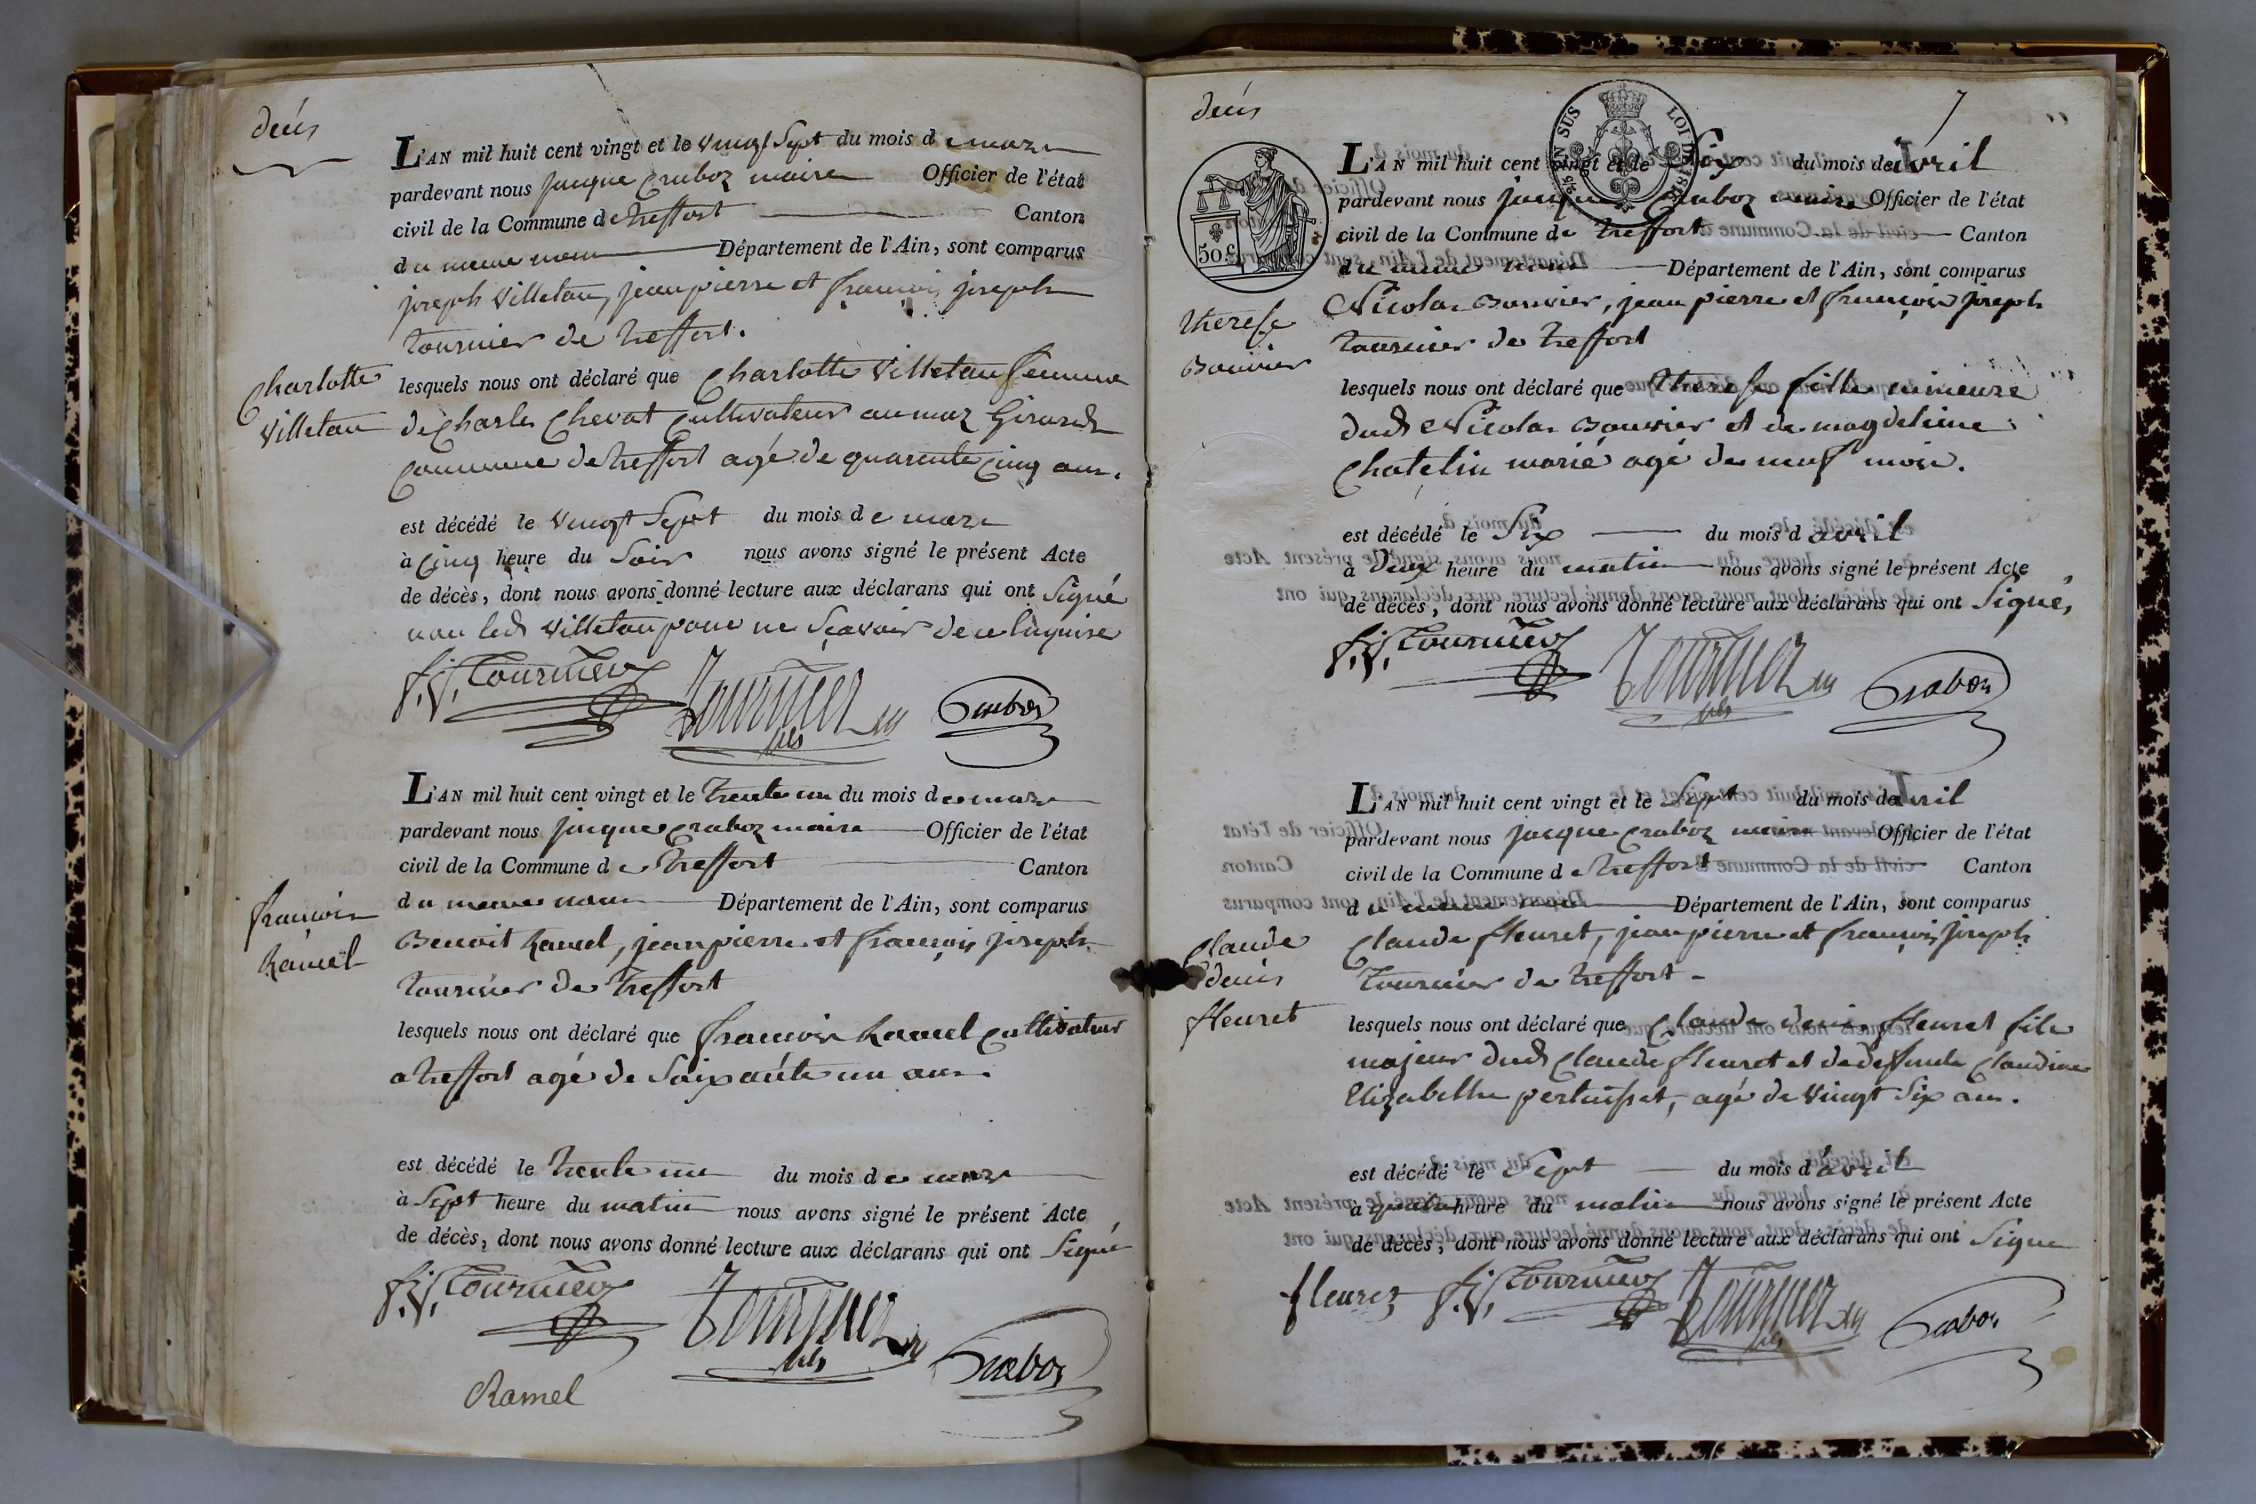 décès
L'AN mil huit cent vingt et le vingt Sept du mois de mars
pardevant nous jacque Craboz maire Officier de l'état
civil de la Commune de treffort Canton
du meme nom Département de l'Ain, sont comparus
joseph Villetau, jean pierre et françois joseph
tournier de treffort.
Charlotte
Villetau
lesquels nous ont déclaré que Charlotte Villetau femme
de Charle Chevat Cultivateur au maz Girard
Commune de treffort agé de quarente Cinq ans.
est décédé le vingt Sept du mois de mars
à Cinq heure du Soir nous avons signé le présent Acte
de décès, dont nous avons donné lecture aux déclarans qui ont Signé
non led Villetau pour ne Sçavoir de ce Enquise
f. j. Tournier Tournier fils Craboz
L'AN mil huit cent vingt et le trente un du mois de mars
pardevant nous jacque Craboz maire Officier de l'état
civil de la Commune de treffort Canton
du meme nom Département de l'Ain, sont comparus
françois
Ramel
Benoit Ramel, jean pierre et françois joseph
tournier de treffort
lesquels nous ont déclaré que françois Ramel Cultivateur
a treffort agé de Soixante un ans.
est décédé le trente un du mois de mars
à Sept heure du matin nous avons signé le présent Acte
de décès, dont nous avons donné lecture aux déclarans qui ont Signé
f. j. Tournier Tournier fils Craboz
Ramel
décès
7
50 c
L'AN mil huit cent vingt et le Six du mois d'avril
pardevant nous jacque Craboz maire Officier de l'état
civil de la Commune de treffort Canton
du meme nom Département de l'Ain, sont comparus
therese
Bouvier
Nicolas Bouvier, jean pierre et françois joseph
tournier de treffort
lesquels nous ont déclaré que therese fille mineure
dud Nicolas Bouvier et de magdeleine
Chatelin marié agé de neuf mois.
est décédé le Six du mois d'avril
à deux heure du matin nous avons signé le présent Acte
de décès, dont nous avons donné lecture aux déclarans qui ont Signé,
f. j. Tournier Tournier fils Craboz
L'AN mil huit cent vingt et le Sept du mois d'avril
pardevant nous jacque Craboz maire Officier de l'état
civil de la Commune de treffort Canton
du meme nom Département de l'Ain, sont comparus
Claude
denis
fleuret
Claude fleuret, jean pierre et françois joseph
tournier de treffort
lesquels nous ont déclaré que Claude denis fleuret fils
majeur dud Claude fleuret et de deffunte Claudine
Elizabethe pertuisset, agé de vingt Six ans.
est décédé le Sept du mois d'avril
à quatre heure du matin nous avons signé le présent Acte
de décès, dont nous avons donné lecture aux déclarans qui ont Signé
fleuret f. j. Tournier Tournier fils Craboz